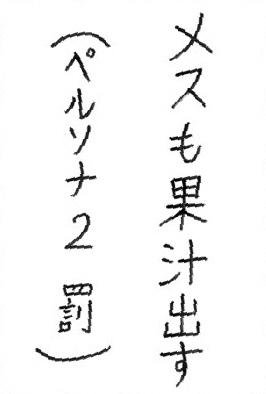 メスも果汁出す
(ペルソナ2 罰)